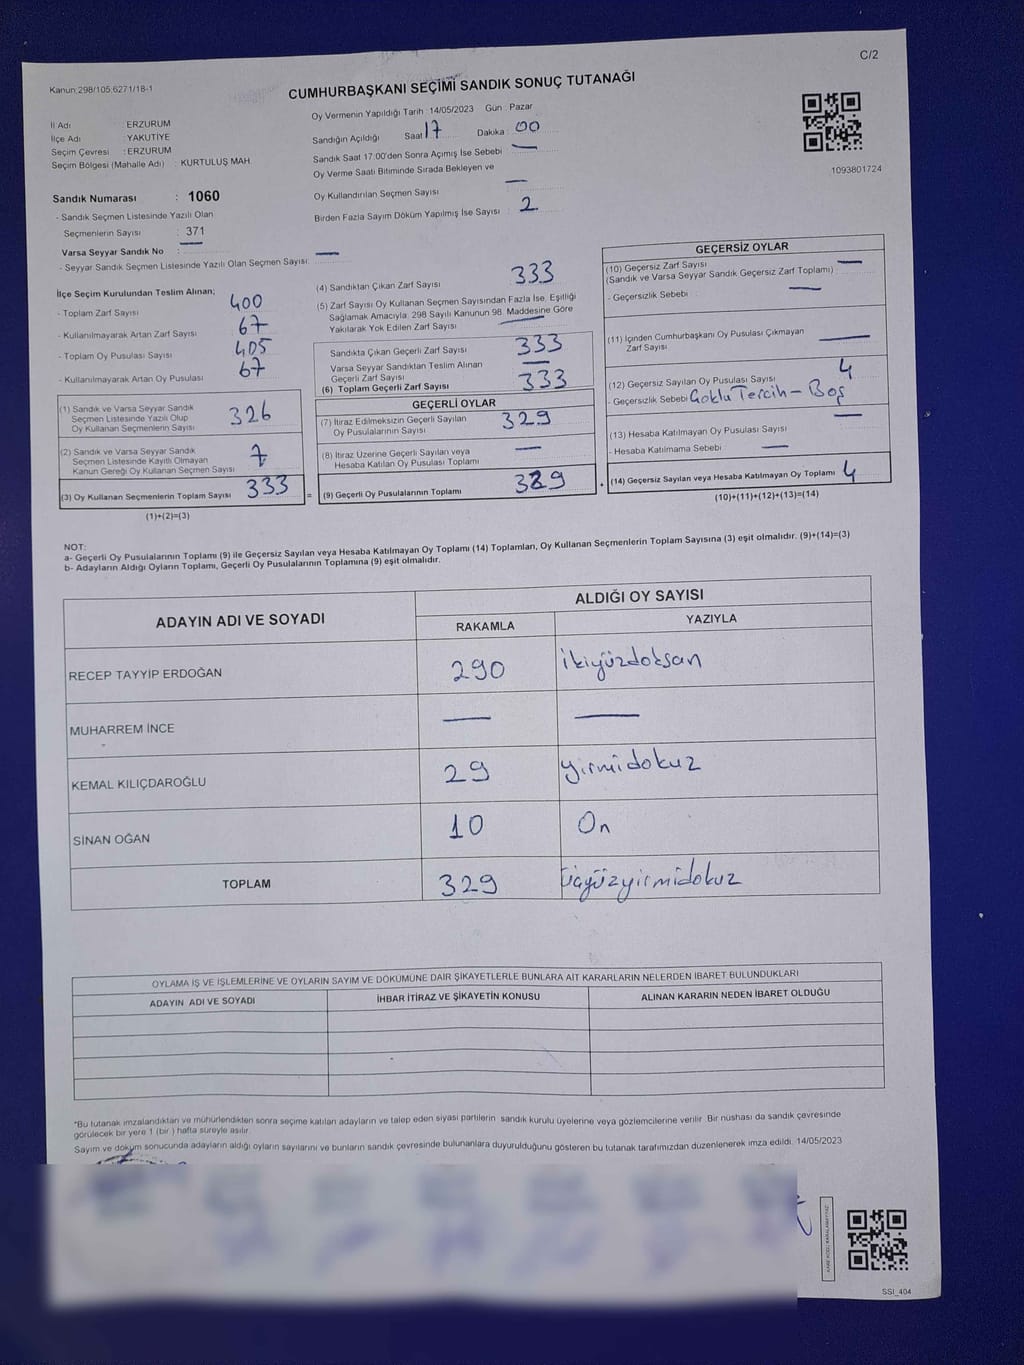 C/2
Kanun;298/105;6271/18-1
CUMHURBAŞKANI SEÇİMİ SANDIK SONUÇ TUTANAĞI
İl Adı : ERZURUM
İlçe Adı : YAKUTİYE
Seçim Çevresi : ERZURUM
Seçim Bölgesi (Mahalle Adı) : KURTULUŞ MAH
Sandık Numarası : 1060
- Sandık Seçmen Listesinde Yazılı Olan
Seçmenlerin Sayısı : 371
Varsa Seyyar Sandık No : —
- Seyyar Sandık Seçmen Listesinde Yazılı Olan Seçmen Sayısı: —
Oy Vermenin Yapıldığı Tarih : 14/05/2023 Gün : Pazar
Sandığın Açıldığı Saat 17 Dakika : 00
Sandık Saat 17:00'den Sonra Açımış İse Sebebi —
Oy Verme Saati Bitiminde Sırada Bekleyen ve
Oy Kullandırılan Seçmen Sayısı —
Birden Fazla Sayım Döküm Yapılmış İse Sayısı : 2
1093801724
İlçe Seçim Kurulundan Teslim Alınan;
- Toplam Zarf Sayısı 400
- Kullanılmayarak Artan Zarf Sayısı 67
- Toplam Oy Pusulası Sayısı 405
- Kullanılmayarak Artan Oy Pusulası 67
(1) Sandık ve Varsa Seyyar Sandık
Seçmen Listesinde Yazılı Olup
Oy Kullanan Seçmenlerin Sayısı 326
(2) Sandık ve Varsa Seyyar Sandık
Seçmen Listesinde Kayıtlı Olmayan
Kanun Gereği Oy Kullanan Seçmen Sayısı 7
(3) Oy Kullanan Seçmenlerin Toplam Sayısı 333
(1)+(2)=(3)
(4) Sandıktan Çıkan Zarf Sayısı 333
(5) Zarf Sayısı Oy Kullanan Seçmen Sayısından Fazla İse, Eşitliği
Sağlamak Amacıyla; 298 Sayılı Kanunun 98. Maddesine Göre
Yakılarak Yok Edilen Zarf Sayısı —
Sandıkta Çıkan Geçerli Zarf Sayısı 333
Varsa Seyyar Sandıktan Teslim Alınan
Geçerli Zarf Sayısı —
(6) Toplam Geçerli Zarf Sayısı 333
GEÇERLİ OYLAR
(7) İtiraz Edilmeksizin Geçerli Sayılan
Oy Pusulalarının Sayısı 329
(8) İtiraz Üzerine Geçerli Sayılan veya
Hesaba Katılan Oy Pusulası Toplamı —
= (9) Geçerli Oy Pusulalarının Toplamı 329
GEÇERSİZ OYLAR
(10) Geçersiz Zarf Sayısı —
(Sandık ve Varsa Seyyar Sandık Geçersiz Zarf Toplamı)
- Geçersizlik Sebebi : —
(11) İçinden Cumhurbaşkanı Oy Pusulası Çıkmayan
Zarf Sayısı —
(12) Geçersiz Sayılan Oy Pusulası Sayısı 4
- Geçersizlik Sebebi Çoklu Tercih - Boş
(13) Hesaba Katılmayan Oy Pusulası Sayısı —
- Hesaba Katılmama Sebebi —
+ (14) Geçersiz Sayılan veya Hesaba Katılmayan Oy Toplamı 4
(10)+(11)+(12)+(13)=(14)
NOT:
a- Geçerli Oy Pusulalarının Toplamı (9) ile Geçersiz Sayılan veya Hesaba Katılmayan Oy Toplamı (14) Toplamları, Oy Kullanan Seçmenlerin Toplam Sayısına (3) eşit olmalıdır. (9)+(14)=(3)
b- Adayların Aldığı Oyların Toplamı, Geçerli Oy Pusulalarının Toplamına (9) eşit olmalıdır.
ADAYIN ADI VE SOYADI ALDIĞI OY SAYISI
RAKAMLA YAZIYLA
RECEP TAYYİP ERDOĞAN 290 ikiyüzdoksan
MUHARREM İNCE — —
KEMAL KILIÇDAROĞLU 29 yirmidokuz
SİNAN OĞAN 10 On
TOPLAM 329 üçyüzyirmidokuz
OYLAMA İŞ VE İŞLEMLERİNE VE OYLARIN SAYIM VE DÖKÜMÜNE DAİR ŞİKAYETLERLE BUNLARA AİT KARARLARIN NELERDEN İBARET BULUNDUKLARI
ADAYIN ADI VE SOYADI İHBAR İTİRAZ VE ŞİKAYETİN KONUSU ALINAN KARARIN NEDEN İBARET OLDUĞU
*Bu tutanak imzalandıktan ve mühürlendikten sonra seçime katılan adayların ve talep eden siyasi partilerin sandık kurulu üyelerine veya gözlemcilerine verilir. Bir nüshası da sandık çevresinde
görülecek bir yere 1 (bir ) hafta süreyle asılır.
Sayım ve döküm sonucunda adayların aldığı oyların sayılarını ve bunların sandık çevresinde bulunanlara duyurulduğunu gösteren bu tutanak tarafımızdan düzenlenerek imza edildi. 14/05/2023
SSI_404